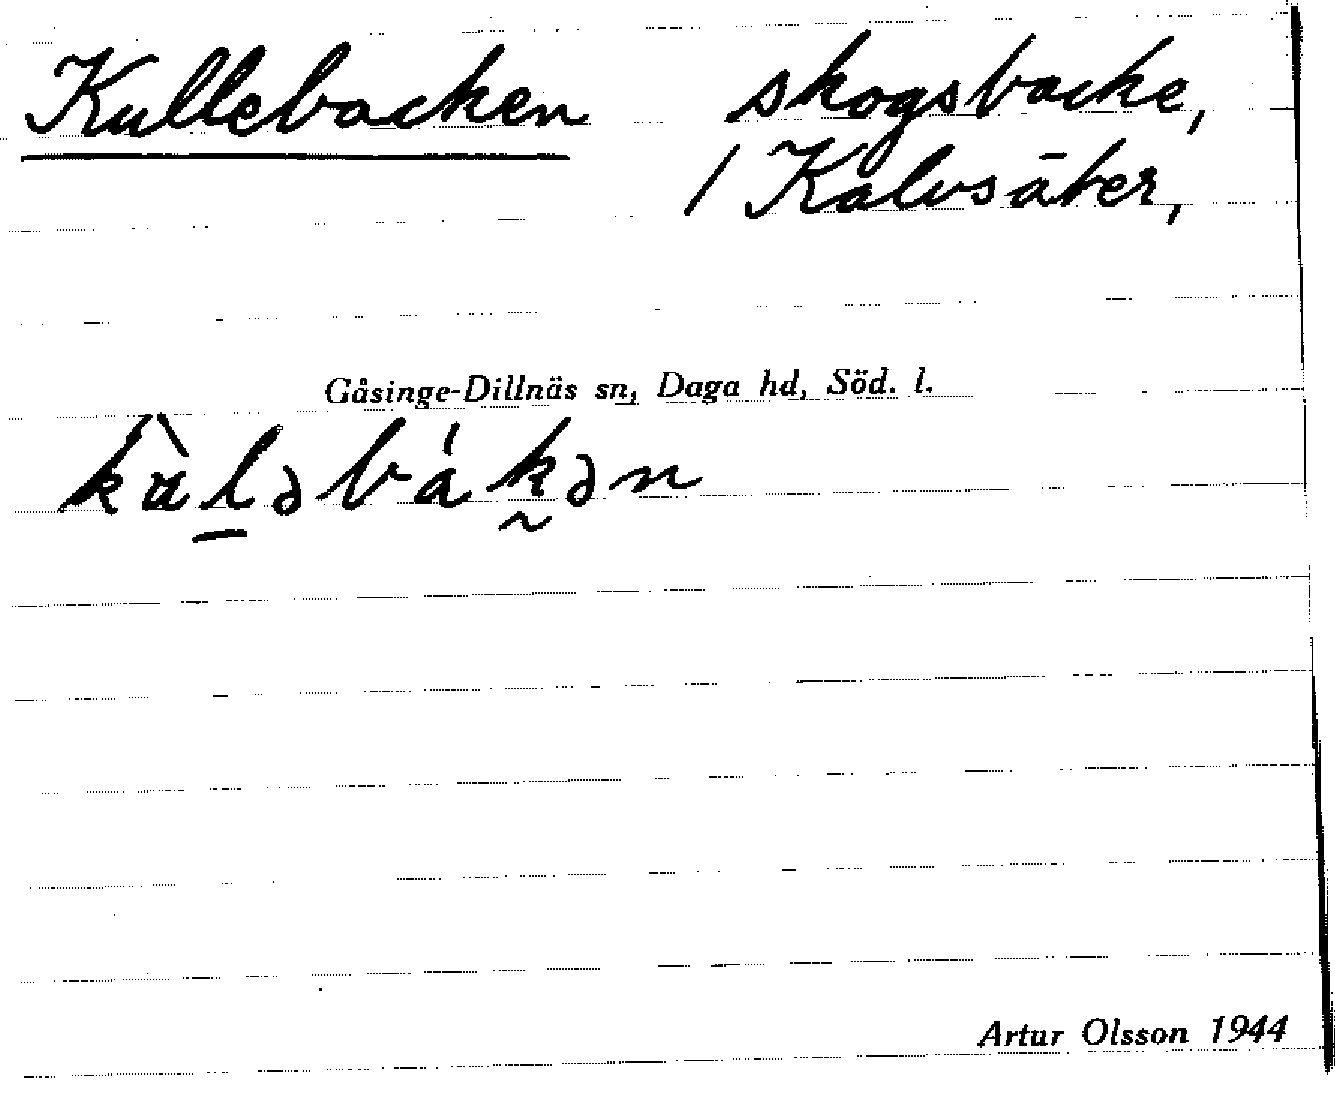 Kullebacken skogsbacke,
/ Kalvsäter,
Gåsinge-Dillnäs sn, Daga hd, Söd. l.
kùl̠əbák̰ən
Artur Olsson 1944